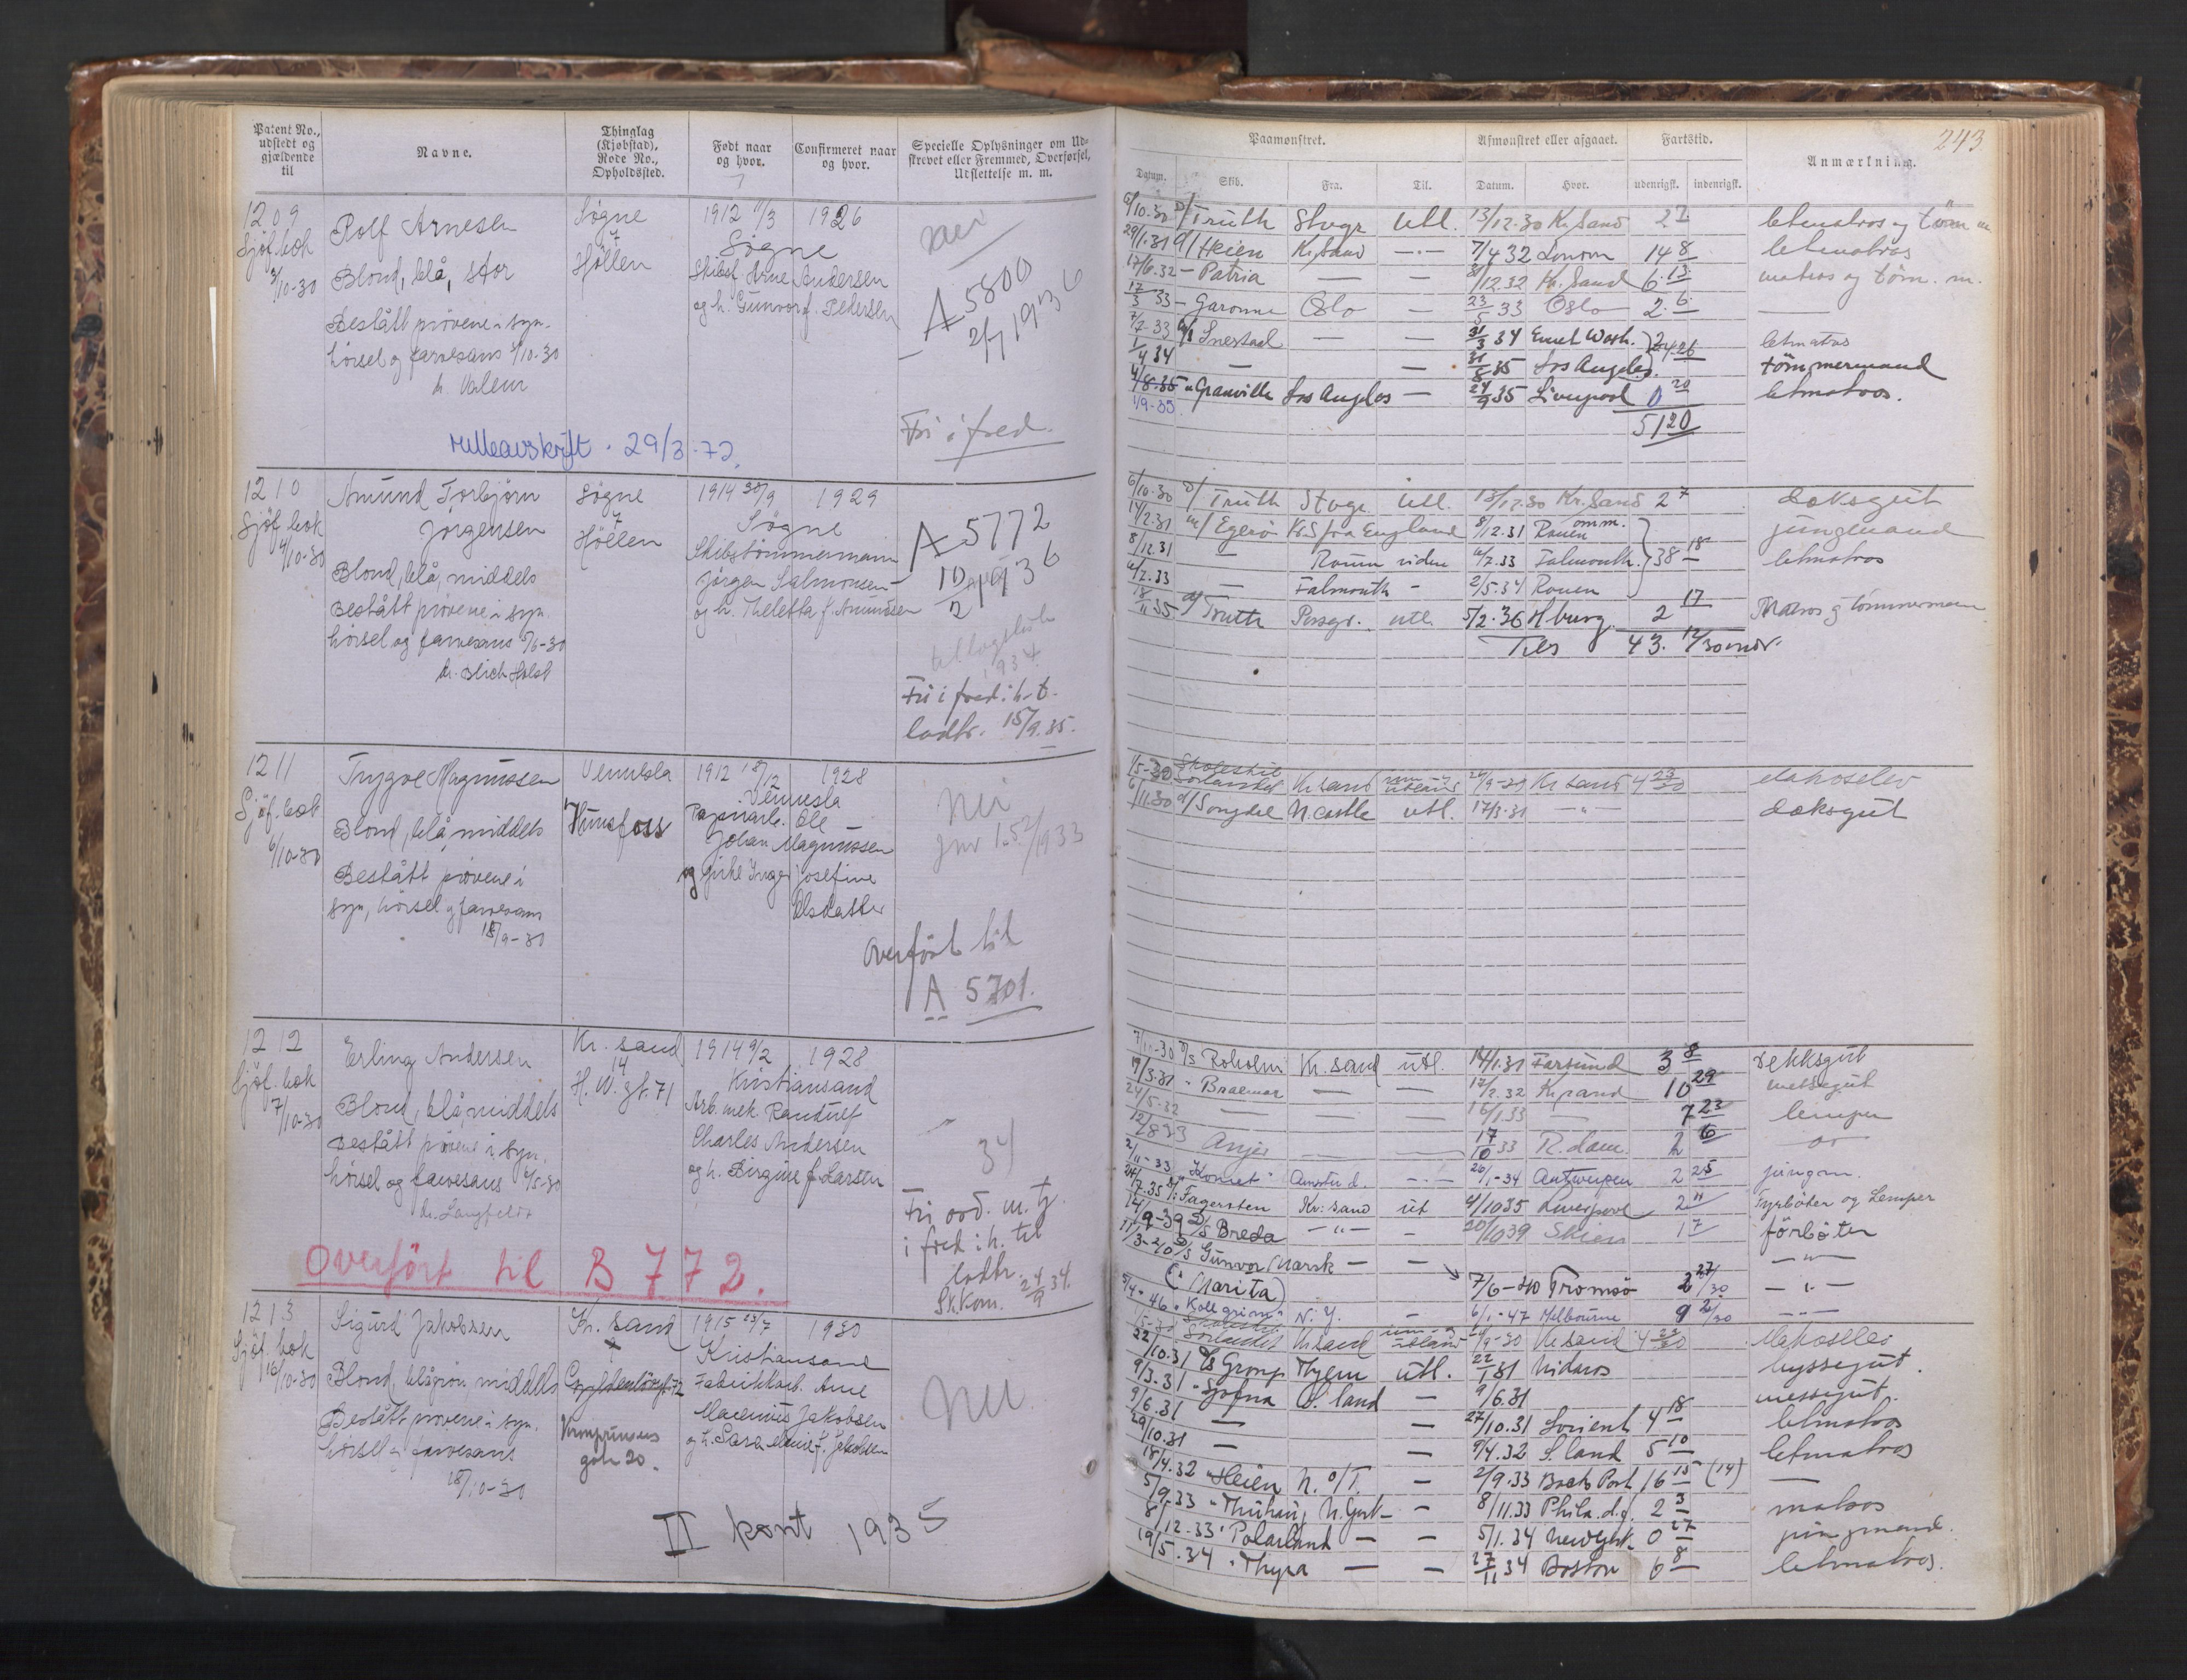 243
Patent No., udstedt og gjældende til
Navne.
Thinglag (Kjøbstad), Rode No., Opholdssted.
Født naar og hvor.
Confirmeret naar og hvor.
Specielle Oplysninger om Udskrevet eller Fremmed, Overførsel, Udslettelse m. m.
Paamønstret.
Afmønstret eller afgaaet.
Fartstid.
Anmærkning.
Datum. Skib. Fra. Til. Datum. Hvor. udenrigsk. indenrigsk.
1209
Sjöf. bok
3/10-30
Rolf Arnesen
Blond, blå, stor
Bestått prövene i syn.
hörsel og farvesans 3/10-30
Søgne
7
Höllen
1912 11/3 1926
Søgne
Skibsf. Arne Andersen
og h. Gunvor f. Pedersen
A 5800
2/7 1936
Fri i fred.
rulleavskrift. 29/3-72.
6/10-30 D/ Truth Stvgr utl. 13/12.30 Kr.sand 2 7 letmatros og töm m
29/1.31 d/ Heien Kr.sand —·— 7/4 32 London 14 8 letmatros
17/6.32 — Patria — — 31/12.32 Kr. Sand 6.13 matros og töm. m.
17/3 33 — Garonne Oslo — 23/5 33 Oslo 2.6 —
7/7-33 Snestad — — 31/3 34 letmatros
1/4 34 — — 31/8 35 Los Angeles tömmermand
4/8.35 " Granville Los Angles — 24/9 35 Liverpool 0 20 letmatros.
1/9-35
51 20
1210
Sjöf. bok
4/10-30
Amund Torbjörn
Jörgensen
Blond, blå, middels
Bestått prövene i syn.
hörsel og farvesans 5/6-30
dr. Blich Holst
Søgne
7
Höllen
1914 30/9 1929
Søgne
Skibstömmermann
Jörgen Salmonsen
og h. Teletta f. Amundsen
A 5772
1936
1934
Fri i fred i h. t.
lodtr. 15/9.35.
6/10-30 D/ Truth Stvgr. Utl. 13/12.30 Kr.sand 2 7 deksgut
14/2.31 m/ Egerö Kr.S fra England 8/12.31 Rouen omm. jungmand
8/12.31 — Rouen videre 4/7.33 Falmouth. 38 18 letmatros
4/7.33 — Falmouth - 2/5.34 Rouen
18/11 35 d/ Truth Porsgr. utl. 5/2.36 Hburg. 2 17 Matros og tömmermann
Tils 43. 12/30 mdr.
1211
Sjöf. bok
6/10-30
Trygve Magnussen
Blond, blå, middels
Bestått prövene i
syn, hörsel og farvesans
18/9-30
Vennesla
Hunsfoss
1912 18/12 1928
Vennesla
Papirarb. Ole
Johan Magnussen
og Girke Inger Josefine
Olsdatter
Nei
Overfört til
A 5701.
1/5-30 Skoleskib Sörlandet Kr sand 26/9-30 Kr sand 4 23/30 dekkselev
6/11.30 d/ Songdal N.castle utl. 17/3.31 —"— deksgut
1212
Sjöf. bok
7/10-30
Erling Andersen
Blond, blå, middels
Bestått prövene i syn.
hörsel og farvesans 6/5-30
dr. Langfeldt
Kr. sand
14
H. W. gt. 71
1914 9/2 1928
Kristiansand
Arb. mek. Randulf
Charles Andersen
og h. Birgine f. Larsen
34
Fri ord. m. tj.
i fred i h. til
lodtr.
Sk.kom. 24/9 34.
Overfört til B 772.
7/11-30 D/S Roholm Kr. sand utl. 14/1.31 Farsund 3 8 Dekksgut
19/3.31 " Braemar — — 17/2.32 Kr.sand 10 29 messegut
24/5-32 — — — 16/1.33 — 7 23 lemper
12/8 33 — — 17/10 33 R.dam. 2 6
2/11-33 "Komet" Amsterd. —·— 26/1-34 Antwerpen 2 25 jungm.
24/7.35 Fagersten Kr: sand ut 4/10 35 Liverpool 2 11 Fyrböter og Lemper
14/9-39 D/S Breda —"— - 20/10 39 Skien 1 7 förböter
11/3-40 D/S Gunvor Marsk — — —"—
(" Marita) 7/6-40 Tromsö 2 27/30 —"—
5/4-46 "Kollgrim" N.Y. - 6/1-47 Melbourne 9 2/30 —"—
1213
Sjöf. bok
16/10-30
Sigurd Jakobsen
Blond, blågrön middels
Bestått prövene i syn.
hörsel og farvesans
18/10-30
Kr. sand
Kronprinsens
gate 20.
1915 23/7 1930
Kristiansand
Fabrikkarb. Arne
Maximius Jakobsen
og h. Sara Marie f. Jakobsen
Nei
II kont 1935
1/5-30 Sörlandet Kr.sand 26/9-30 Kr.sand 4 23/30 dekkselev
22/10.31 D/S Grong Thjem utl. 22/1 31 Nidaros byssegut.
9/3.31 " Gjofna S.land — 9/6.31 messegut.
9/6.31 — — 27/10.31 Lorient 4 18 letmatros
29/10.31 — — 9/4.32 S.land 5 10 letmatros
18/4.32 " Heien N. o/T. — 2/9.33 16 15 (14) —
5/9.33 — 8/11.33 Phila. d.g. 2 3 matros
8/12-33 " Polarland — — 5/1.34 NewYrk. 0 27 jungmand.
19/5.34 " Thyra — — 27/11 34 Boston 6 8 letmatros.